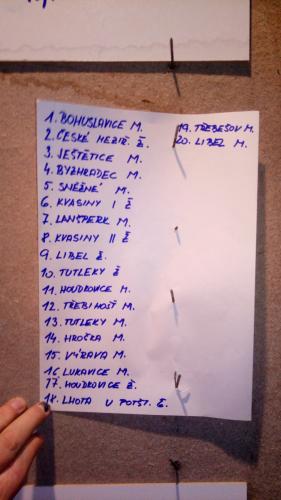 1. BOHUSLAVICE M.
2. ČESKÉ MEZIŘ. Ž.
3. JEŠTĚTICE M.
4. BYZHRADEC M.
5. SNĚŽNÉ M.
6. KVASINY I Ž
7. LANŠPERK M.
8. KVASINY II Ž
9. LIBEL Ž.
10. TUTLEKY Ž
11. HOUDKOVICE M.
12. TŘEBIHOŠŤ M.
13. TUTLEKY M.
14. HROŠKA M.
15. VÝRAVA M.
16. LUKAVICE M.
17. HOUDKOVICE Ž.
18. LHOTA U POTŠT. Ž.
19. TŘEBEŠOV M.
20. LIBEL M.